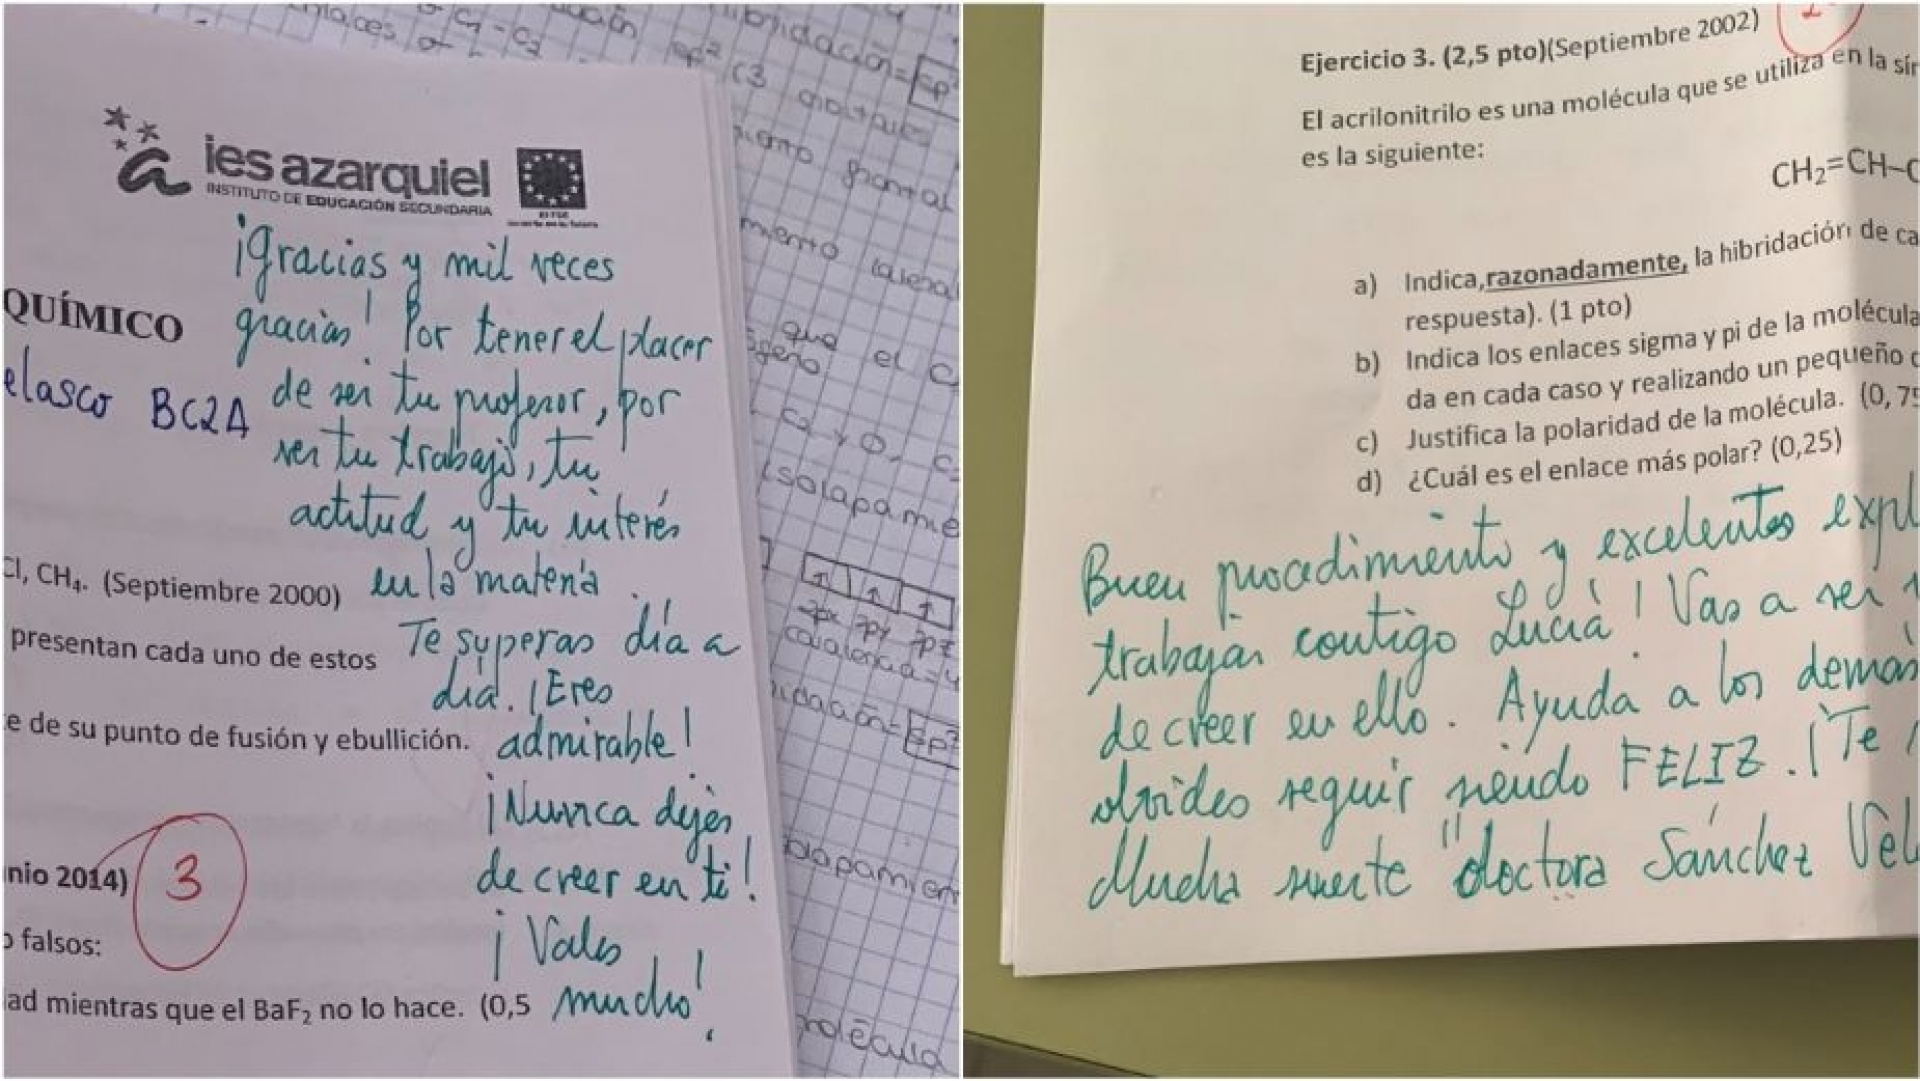 ies azarquiel
INSTITUTO DE EDUCACIÓN SECUNDARIA
QUÍMICO
elasco BC2A
¡Gracias y mil veces
gracias! Por tener el placer
de ser tu profesor, por
ver tu trabajo, tu
actitud y tu interés
en la materia.
Te superas día a
día. ¡Eres
admirable!
¡Nunca dejes
de creer en ti!
¡Vales
mucho!
Cl, CH₄. (Septiembre 2000)
presentan cada uno de estos
e de su punto de fusión y ebullición.
nio 2014) 3
o falsos:
ad mientras que el BaF₂ no lo hace. (0,5
nlaces σ C₁-C₂
sp² (3
hibridación=sp²
frontal
que el C
C₂ y O
(solapamie
2px 2py 2pz
covalencia=4
idación=sp²
olapamien
molécula
Ejercicio 3. (2,5 pto)(Septiembre 2002)
El acrilonitrilo es una molécula que se utiliza en la sín
es la siguiente:
CH₂=CH–C
a) Indica,razonadamente, la hibridación de ca
respuesta). (1 pto)
b) Indica los enlaces sigma y pi de la molécula
da en cada caso y realizando un pequeño d
c) Justifica la polaridad de la molécula. (0,75
d) ¿Cuál es el enlace más polar? (0,25)
Buen procedimiento y excelentes expl
trabajar contigo Lucía! Vas a ser
de creer en ello. Ayuda a los demás
olvides seguir siendo FELIZ. ¡Te
Mucha suerte "doctora Sánchez Vel